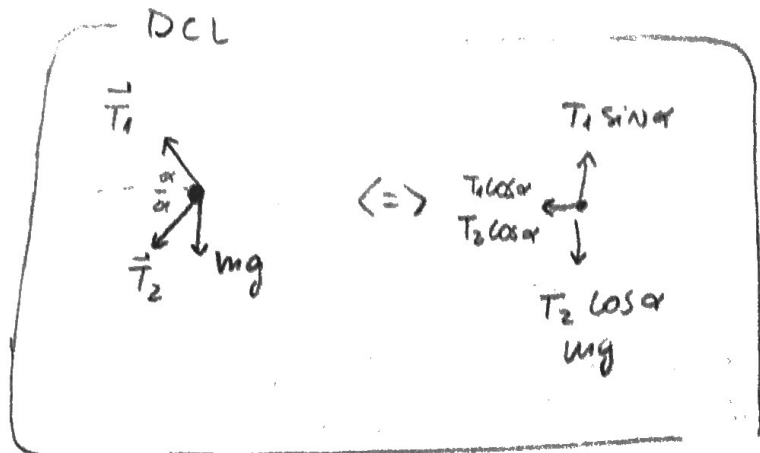 DCL
T⃗₁
α
α
T⃗₂
mg
<=>
T₁ sinα
T₁cosα
T₂cosα
T₂ cosα
mg